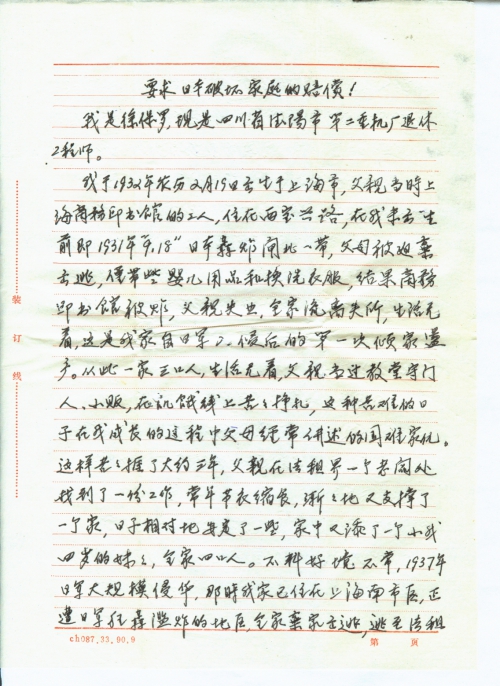 要求日本破坏家庭的赔偿!
我是徐保罗,现是四川省德阳市第二重机厂退休
工程师。
我于1932年农历2月19日出生于上海市,父亲当时上
海商务印书馆的工人,住在西宝兴路,在我未出生
前即1931年“9.18”日本轰炸闸北一带,父母被迫弃
家逃,仅带些婴儿用品和换洗衣服,结果商务
印书馆被炸,父亲失业,全家流离失所,生活无
着,这是我家自日军入侵后的第一次倾家荡
产。从此一家三口人,生活无着,父亲当过教堂守门
人、小贩,在饥饿线上苦苦挣扎,这种苦难的日
子在我成长的过程中父母经常讲述的国难家仇。
这样苦苦捱了大约三年,父亲在法租界一个老闆处
找到了一份工作,常年节衣缩食,渐渐地又支撑了
一个家,日子相对地安定了一些,家中又添了一个小我
四岁的妹妹,全家四口人。不料好境不常,1937年
日军大规模侵华,那時我家已住在上海南市区,正
遭日军狂轰滥炸的地区,全家弃家出逃,逃至法租
装订线
ch087.33.90.9
第 页